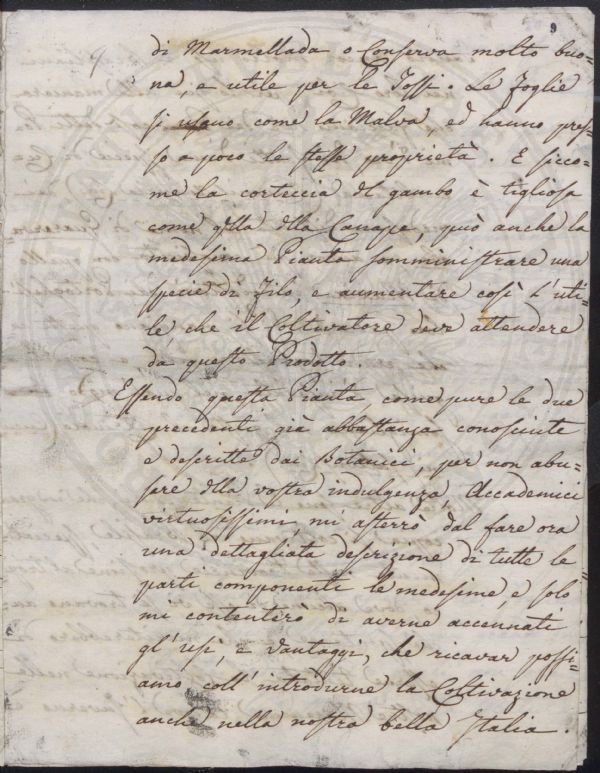 9
di Marmellada o Conserva molto buo=
na, e utile per le Tossi. Le Foglie
si usano come la Malva, ed hanno pres=
so a poco le stesse proprietà. E sicco=
me la corteccia del gambo è tigliosa
come qlla dlla Canape, può anche la
medesima Pianta somministrare una
specie di Filo, e aumentare così l'uti=
le, che il Coltivatore deve attendere
da questo Prodotto.
Essendo questa Pianta come pure le due
precedenti già abbastanza conosciute
e descritte dai Botanici, per non abu=
sare dlla vostra indulgenza, Accademici
virtuosissimi, mi asterrò dal fare ora
una dettagliata descrizione di tutte le
parti componenti le medesime, e solo
mi contenterò di averne accennati
gl'usi, e vantaggi, che ricavar possi=
amo coll'introdurne la Coltivazione
anche nella nostra bella Italia.